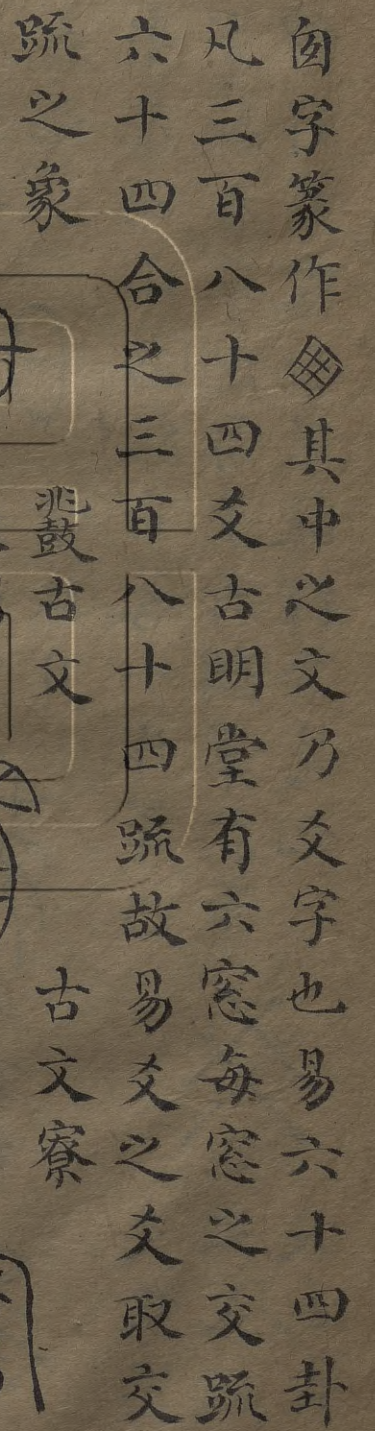 囱字篆作其中之文乃爻字也易六十四卦
凡三百八十四爻古明堂有六窓每窓之交䟽
六十四合之三百八十四䟽故易爻之爻取交
䟽之象
鼗古文
古文寮